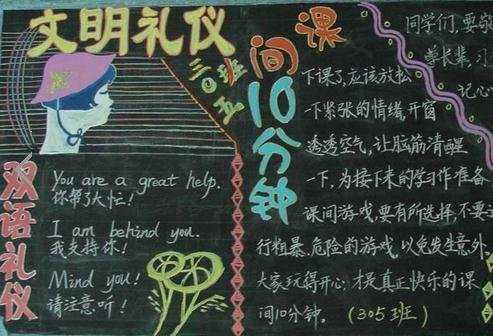 文明礼仪
三〇五班
双语礼仪
You are a great help.
你帮了大忙！
I am behind you.
我支持你！
Mind you!
请注意听！
课间10分钟
下课了,应该放松
一下紧张的情绪,开窗
透透空气,让脑筋清醒
一下,为接下来的学习作准备。
课间游戏,要有所选择,不要
行粗暴、危险的游戏,以免发生意外。
大家玩得开心,才是真正快乐的课
间10分钟。 (305班)
同学们,要
学长辈,
记心